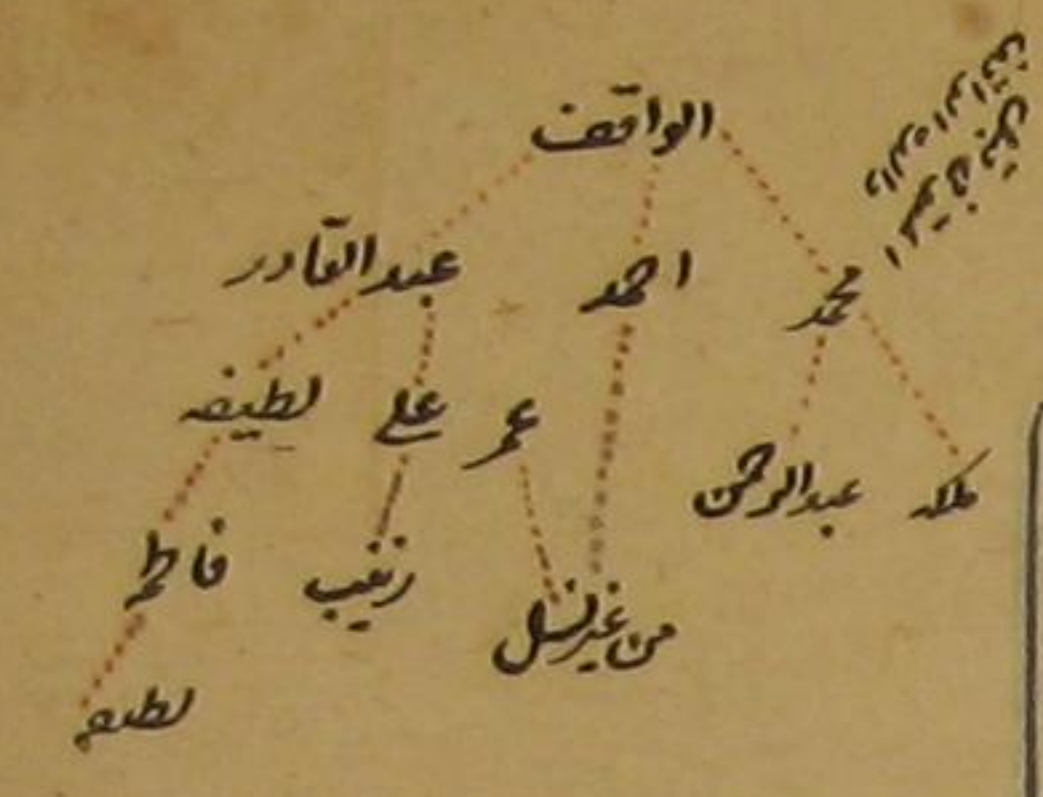 الواقف
عبد القادر
احمد
محمد
لطيفه
علي
عمر
عبد الرحمن
ملكه
فاطمه
زينب
من غير نسل
لطيفه